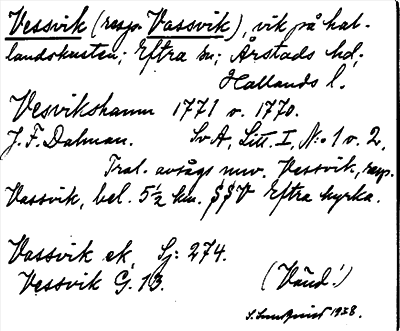 Vessvik (resp. Vassvik), vik på hal-
landskusten; Eftra sn; Årstads hd;
Hallands l.
Vesvikshamn 1771 v. 1770.
J. F. Dalman. Sv A, Litt. I, N:o 1 v. 2.
Trol. avsågs nuv. Vessvik, resp.
Vassvik, bel. 5½ km. SSV Eftra kyrka.
Vassvik ek. Sj: 274.
Vessvik G. 13. (Vänd!)
S. Sundqvist 1928.